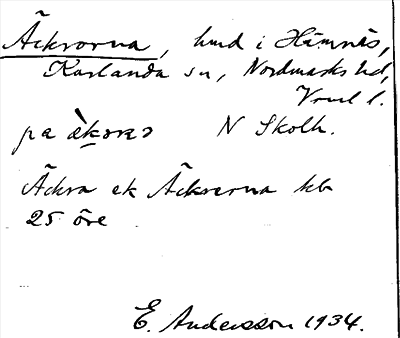 Äckrorna, lund i Hämnäs,
Karlanda sn, Nordmarks hd,
Vrml l.
pa N Skolh.
Äckra ek Äckrarna kb
25 öre
E. Andersson 1934.